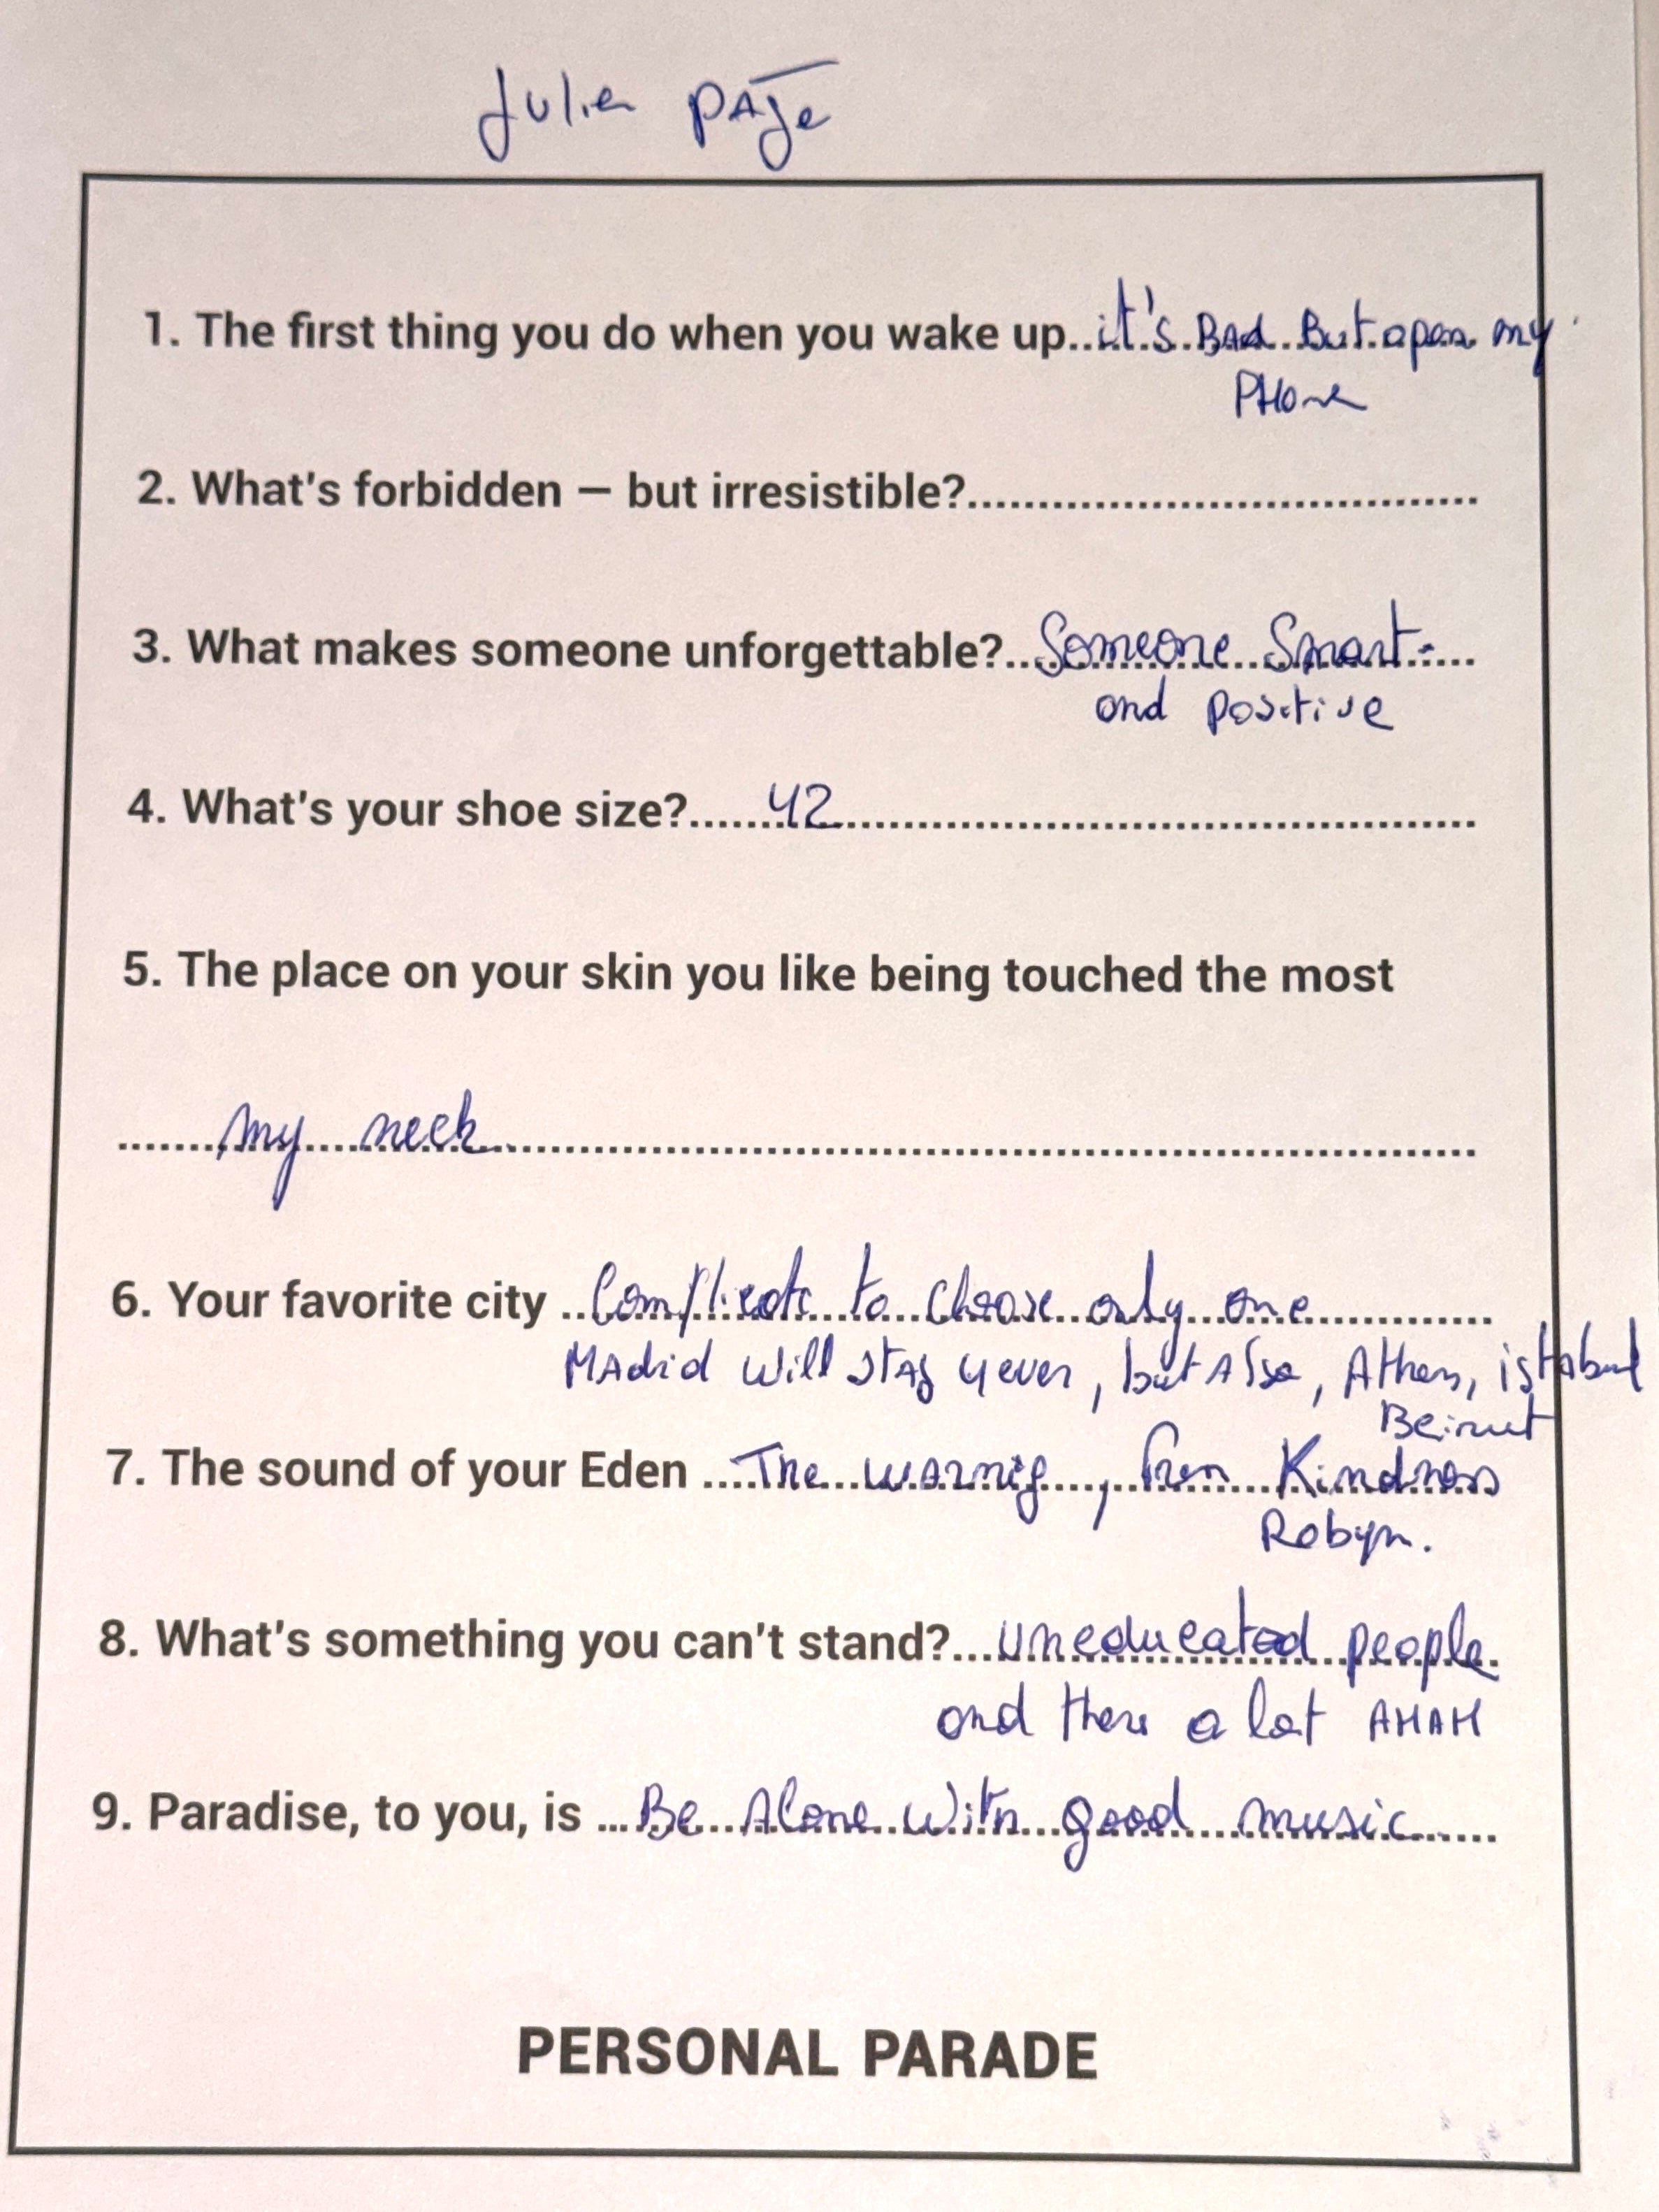 Julien PAGE
1. The first thing you do when you wake up..it's BAd But open my
PHone
2. What's forbidden – but irresistible?....................................
3. What makes someone unforgettable?..Someone Smart
and positive
4. What's your shoe size?......42.............................................
5. The place on your skin you like being touched the most
.......my neck.......................................................................
6. Your favorite city ..Complicate to choose only one.............
MAdrid will stay 4ever, but Also, Athens, istabul
Beirut
7. The sound of your Eden ....The warnig , from Kindness
Robyn.
8. What's something you can't stand?...uneducated people
and there a lot AHAH
9. Paradise, to you, is ...Be Alone With good music......
PERSONAL PARADE